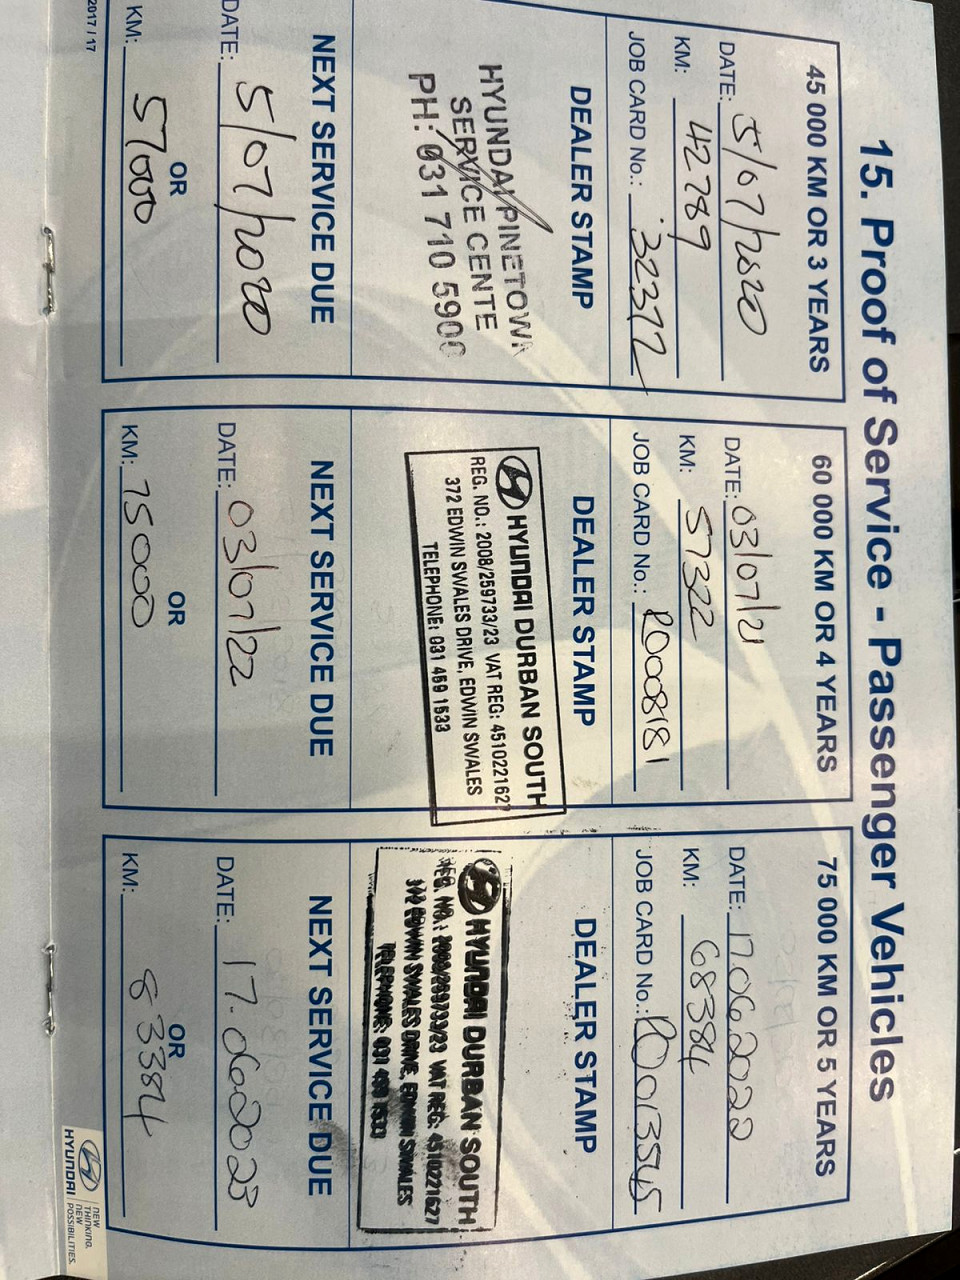 15. Proof of Service - Passenger Vehicles
45 000 KM OR 3 YEARS
DATE: 5/07/2020
KM: 42789
JOB CARD No.: 32372
DEALER STAMP
HYUNDAI PINETOWN
SERVICE CENTE
PH: 031 710 5900
NEXT SERVICE DUE
DATE: 5/07/2020
OR
KM: 57000
60 000 KM OR 4 YEARS
DATE: 03/07/21
KM: 57322
JOB CARD No.: R00818
DEALER STAMP
HYUNDAI DURBAN SOUTH
REG. NO.: 2008/259733/23 VAT REG: 4510221627
372 EDWIN SWALES DRIVE, EDWIN SWALES
TELEPHONE: 031 459 1533
NEXT SERVICE DUE
DATE: 03/07/22
OR
KM: 75000
75 000 KM OR 5 YEARS
DATE: 17.06.2022
KM: 68384
JOB CARD No.: R0013545
DEALER STAMP
HYUNDAI DURBAN SOUTH
REG. NO.: 2008/259733/23 VAT REG: 4510221627
372 EDWIN SWALES DRIVE, EDWIN SWALES
TELEPHONE: 031 459 1533
NEXT SERVICE DUE
DATE: 17.062023
OR
KM: 83384
2017 / 17
HYUNDAI
NEW
THINKING.
NEW
POSSIBILITIES.